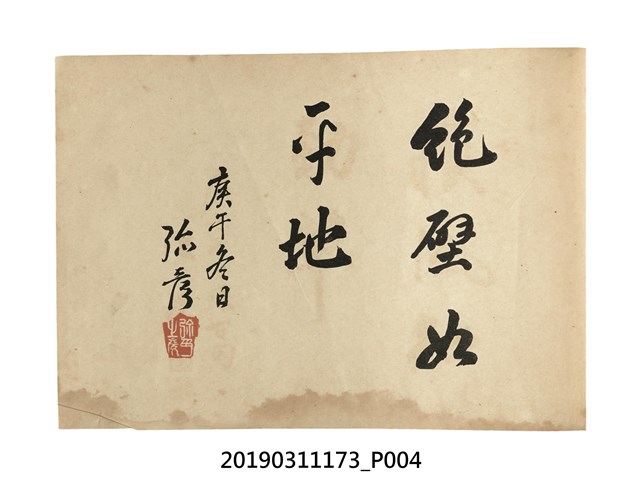 絕壁如
平地
庚午冬日
弥彥
20190311173_P004